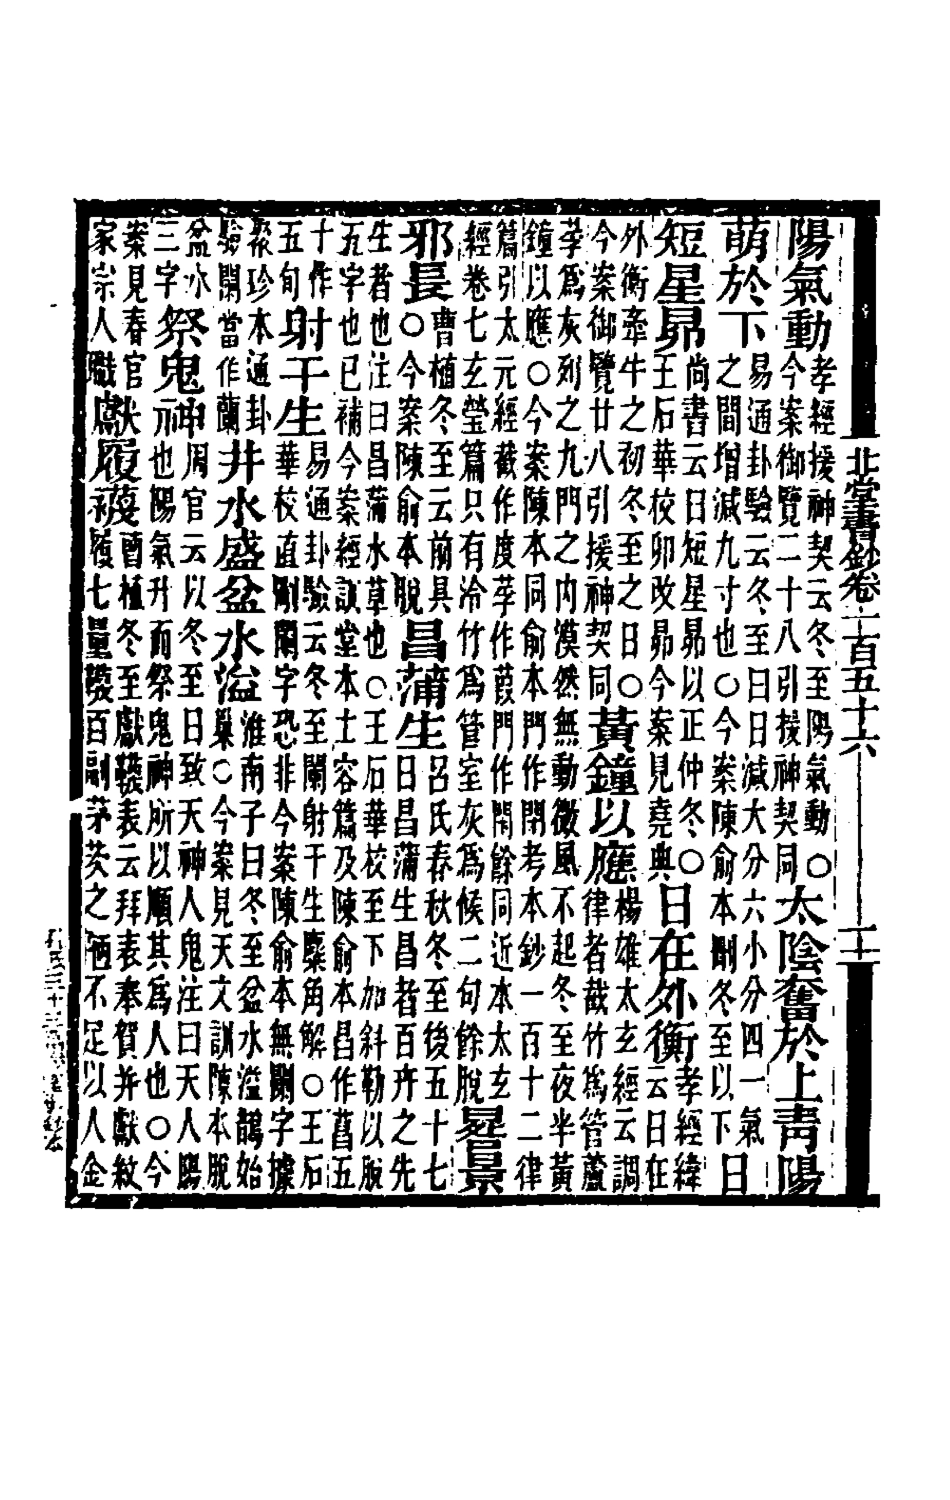 北堂書鈔卷一百五十六 二十
陽氣動 孝經援神契云冬至陽氣動○
今案御覽二十八引援神契同 太陰奮於上青陽
萌於下 易通卦驗云冬至日日減大分六小分四一氣
之間增減九寸也○今案陳俞本刪冬至以下 日
短星昴 尚書云日短星昴以正仲冬○
王石華校卯改昴今案見堯典 日在外衡 孝經緯
云日在
外衡牽牛之初冬至之日○
今案御覽廿八引援神契同 黃鐘以應 楊雄太玄經云調
律者截竹為管蘆
莩為灰列之九門之内漠然無動微風不起冬至夜半黃
鐘以應○今案陳本同俞本門作閉考本鈔一百十二律
篇引太元經截作度莩作葭門作閉餘同近本太玄
經卷七玄瑩篇只有冷竹為管室灰為候二句餘脫 晷景
邪長 曹植冬至云前具
○今案陳俞本脫 昌蒲生 呂氏春秋冬至後五十七
日昌蒲生昌者百卉之先
生者也注曰昌蒲水草也○王石華校至下加斜勒以脫
五字也已補今案經訓堂本士容篇及陳俞本昌作菖五
十作
五旬 射干生 易通卦驗云冬至闌射干生麋角解○王石
華校直刪闌字恐非今案陳俞本無刪字據
聚珍本通卦
驗闌當作蘭 井水盛盆水溢 淮南子曰冬至盆水溢鵲始
巢○今案見天文訓陳本脫
盆水
三字 祭鬼神 周官云以冬至日致天神人鬼注曰天人陽
示也陽氣升而祭鬼神所以順其為人也○今
案見春官
家宗人職 獻履襪 曹植冬至獻襪表云拜表奉賀并獻紋
履七量襪百副茅茨之陋不足以人金